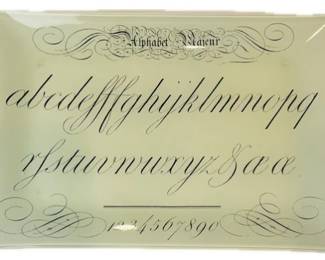 Alphabet Majeur
abcdefffghijklmnopq
rſstuvwxyz&æœ.
1234567890